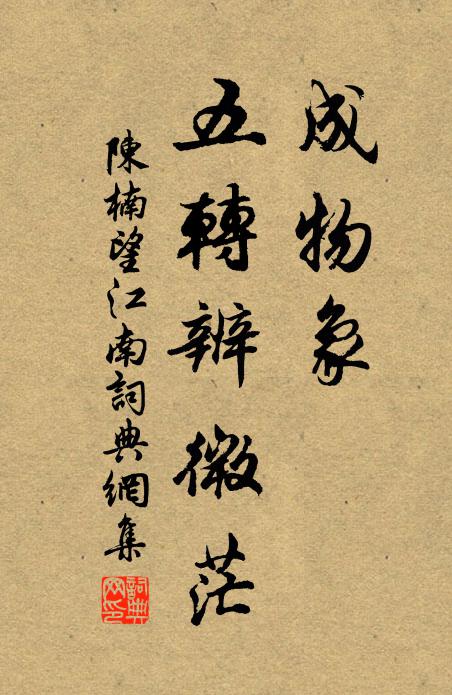 成物象
五轉辨微茫
陳楠望江南詞典網集
詞典网印